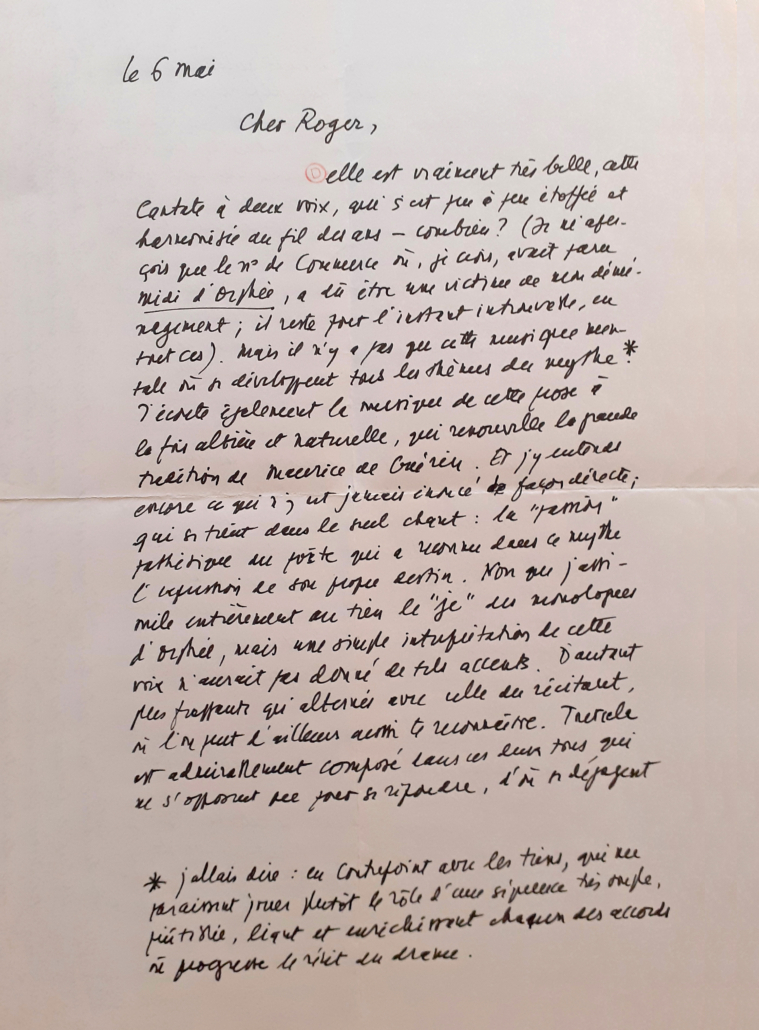 le 6 mai
Cher Roger,
elle est vraiment très belle, cette
Cantate à deux voix, qui s'est peu à peu étoffée et
harmonisée au fil des ans – combien ? (Je m'aper-
çois que le n° de Commerce où, je crois, avait paru
midi d'Orphée, a dû être une victime de mon démé-
nagement ; il reste pour l'instant introuvable, en
tout cas). Mais il n'y a pas que cette musique men-
tale où se développent tous les thèmes du mythe.*
J'écoute également la musique de cette prose à
la fois altière et naturelle, qui renouvelle la grande
tradition de Maurice de Guérin. Et j'y entends
encore ce qui n'y est jamais énoncé de façon directe ;
qui se tient dans le seul chant : la "passion"
pathétique du poète qui a reconnu dans ce mythe
l'expression de son propre destin. Non que j'assi-
mile entièrement au tien le "je" des monologues
d'Orphée, mais une simple interprétation de cette
voix n'aurait pas donné de tels accents. D'autant
plus frappants qu'alternés avec celle du récitant,
où l'on peut d'ailleurs aussi te reconnaître.
est admirablement composé dans ces deux tons qui
ne s'opposent que pour se répondre, d'où se dégagent
* j'allais dire : en contrepoint avec les tiens, qui me
paraissent jouer plutôt le rôle d'une séquence très souple,
liant et enrichissant chacun des accords
où progresse le récit du drame.